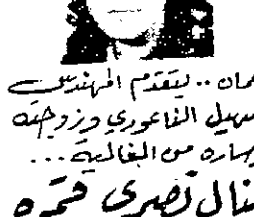 عمان .. يتقدم المهندس
سهيل الفاعوري وزوجته
وساره من الغاليه ...
منال نصري قمره